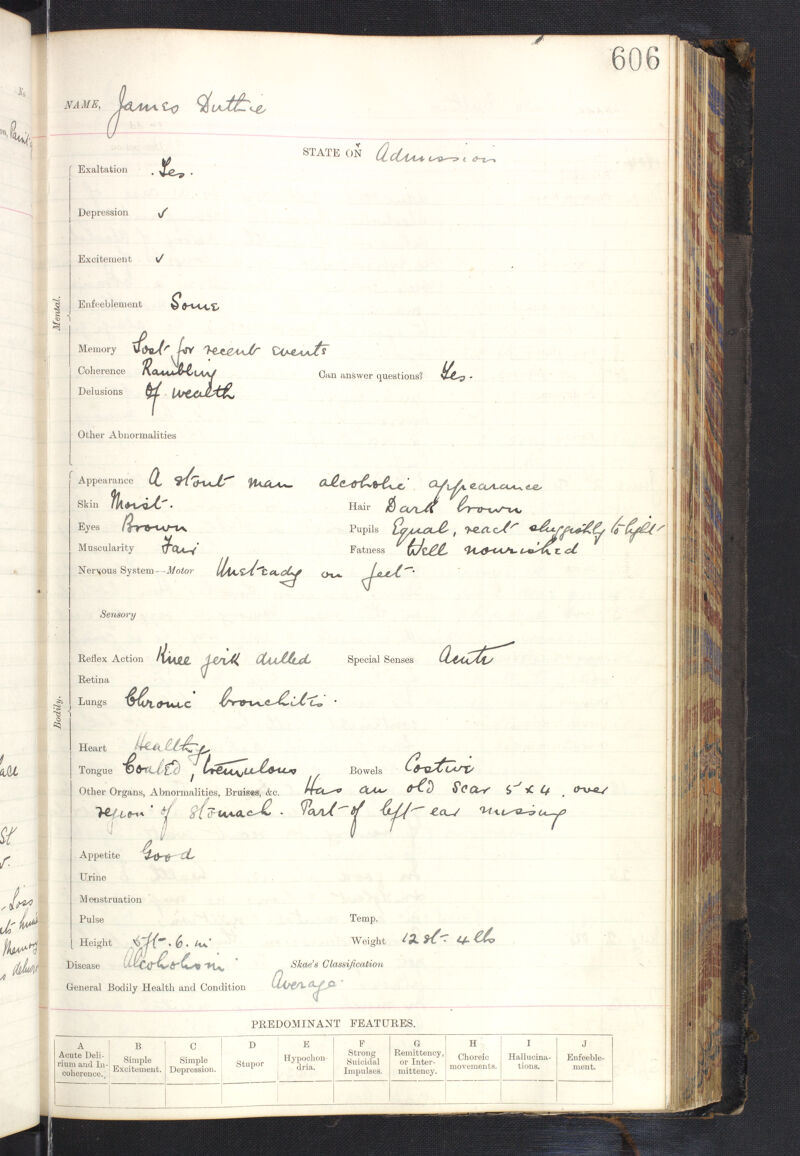 606
NAME, James Duthie
STATE ON Admission
Mental.
Exaltation Yes.
Depression ✓
Excitement ✓
Enfeeblement Some
Memory Lost for recent events
Coherence Rambling Can answer questions? Yes.
Delusions Of wealth
Other Abnormalities
Bodily.
Appearance A stout man alcoholic appearance
Skin Moist. Hair Dark brown
Eyes Brown Pupils Equal, react sluggishly to light
Muscularity Fair Fatness Well nourished
Nervous System—Motor Unsteady on feet.
Sensory
Reflex Action Knee jerk dulled Special Senses Acute
Retina
Lungs Chronic bronchitis.
Heart Healthy
Tongue Coated, tremulous Bowels Costive
Other Organs, Abnormalities, Bruises, &c. Has an old scar 5 x 4. over
region of stomach. Part of left ear missing
Appetite Good
Urine
Menstruation
Pulse Temp.
Height 5ft. 6. in Weight 12 st. 4 lbs
Disease Alcoholism Skae's Classification
General Bodily Health and Condition Average.
PREDOMINANT FEATURES.
A B C D E F G H I J
Acute Deli- Simple Simple Stupor Hypochon- Strong Remittency, Choreic Hallucina- Enfeeble-
rium and In- Excitement. Depression. dria. Suicidal or Inter- movements. tions. ment.
coherence. Impulses. mittency.